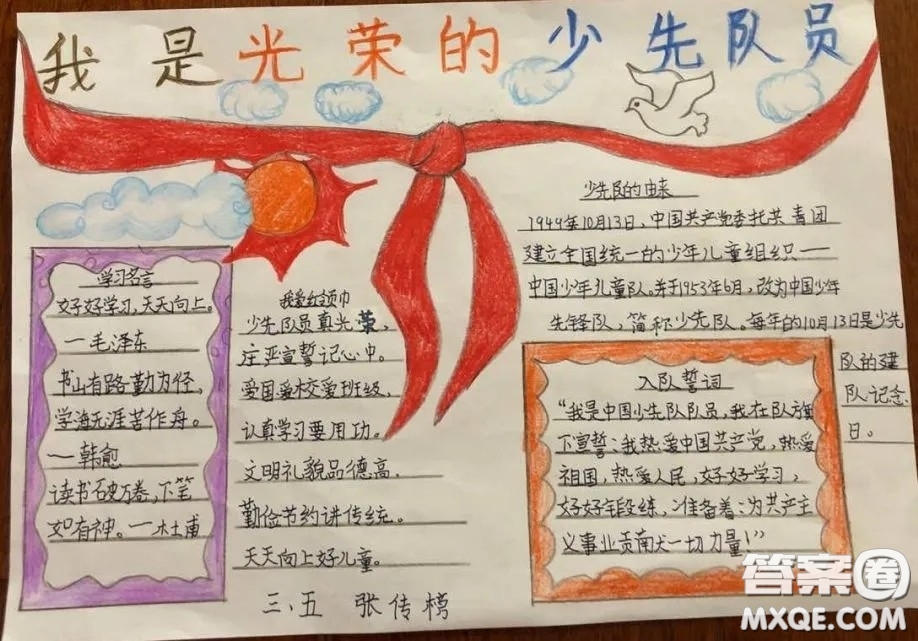 我是光荣的少先队员
学习名言
好好学习,天天向上。
一毛泽东
书山有路勤为径,
学海无涯苦作舟。
一韩愈
读书破万卷,下笔
如有神。一杜甫
我爱红领巾
少先队员真光荣,
庄严宣誓记心中。
爱国爱校爱班级,
认真学习要用功。
文明礼貌品德高,
勤俭节约讲传统。
天天向上好儿童。
三、五 张传
少先队的由来
1949年10月13日,中国共产党委托共青团
建立全国统一的少年儿童组织——
中国少年儿童队。并于1953年6月,改为中国少年
先锋队,简称少先队。每年的10月13日是少先
队的建
队记念
日。
入队誓词
“我是中国少先队队员,我在队旗
下宣誓:我热爱中国共产党,热爱
祖国,热爱人民,好好学习,
好好锻练,准备着:为共产主
义事业贡献一切力量!”
答案圈
MXQE.COM